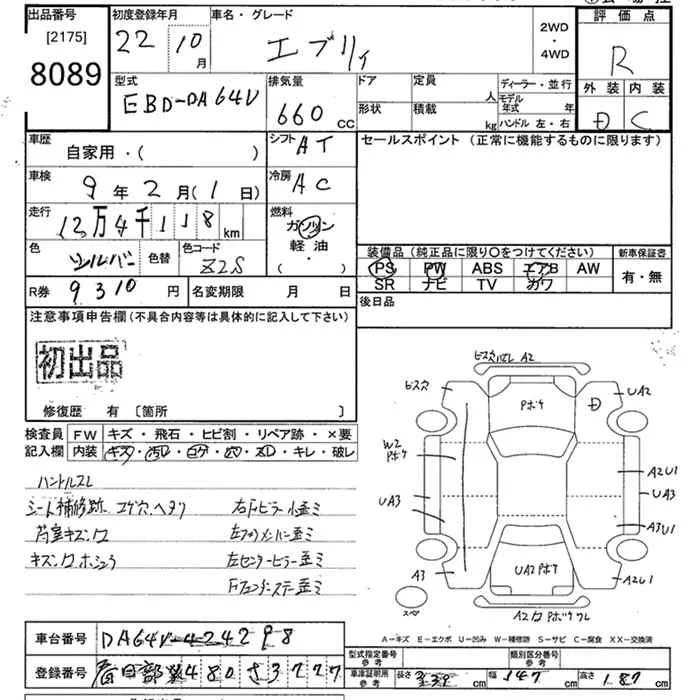 出品番号
[2175]
8089
初度登録年月
22 10 月
車名・グレード
エブリィ
2WD
・
4WD
評 価 点
R
外 装 内 装
D C
型式
EBD-DA64V
排気量
660 CC
ドア
定員
人
形状
積載
kg
ディーラー・並行
モデル年式 年
ハンドル 左・右
車歴
自家用・( )
シフト AT
セールスポイント (正常に機能するものに限ります)
車検
9 年 2 月 ( 1 日)
冷房 AC
走行
12万4千118 km
燃料
ガソリン
軽 油
( ・ )
色
シルバー
色替
色コード
Z2S
装備品 (純正品に限り〇をつけてください)
新車保証書
PS PW ABS エアB AW
SR ナビ TV カワ
有・無
R券 9310 円
名変期限 月 日
後日品
注意事項申告欄 (不具合内容等は具体的に記入して下さい)
初出品
修復歴 有 〔箇所 〕
検査員
記入欄
FW キズ・飛石・ヒビ割・リペア跡・×要
内装 ・キズ・汚レ・コゲ・穴・スレ・キレ・破レ
ハンドルスレ
シート補修跡 コゲ穴 ヘタリ
右Fピラー小歪ミ
左センターピラー歪ミ
ビス穴
A2
Pボケ
D
UA2
W2
Pボケ
UA3
A2U1
UA3
A3U1
A3
UA2 Pボケ
A2U1
スペア
A-キズ E-エクボ U-凹み W-補修跡 S-サビ C-腐食 XX-交換済
車台番号 DA64V-424298
登録番号 春日部 480 さ 3227
型式指定番号
参考
類別区分番号
参考
車庫証明用
参考
長さ 339 幅 147 高さ 187